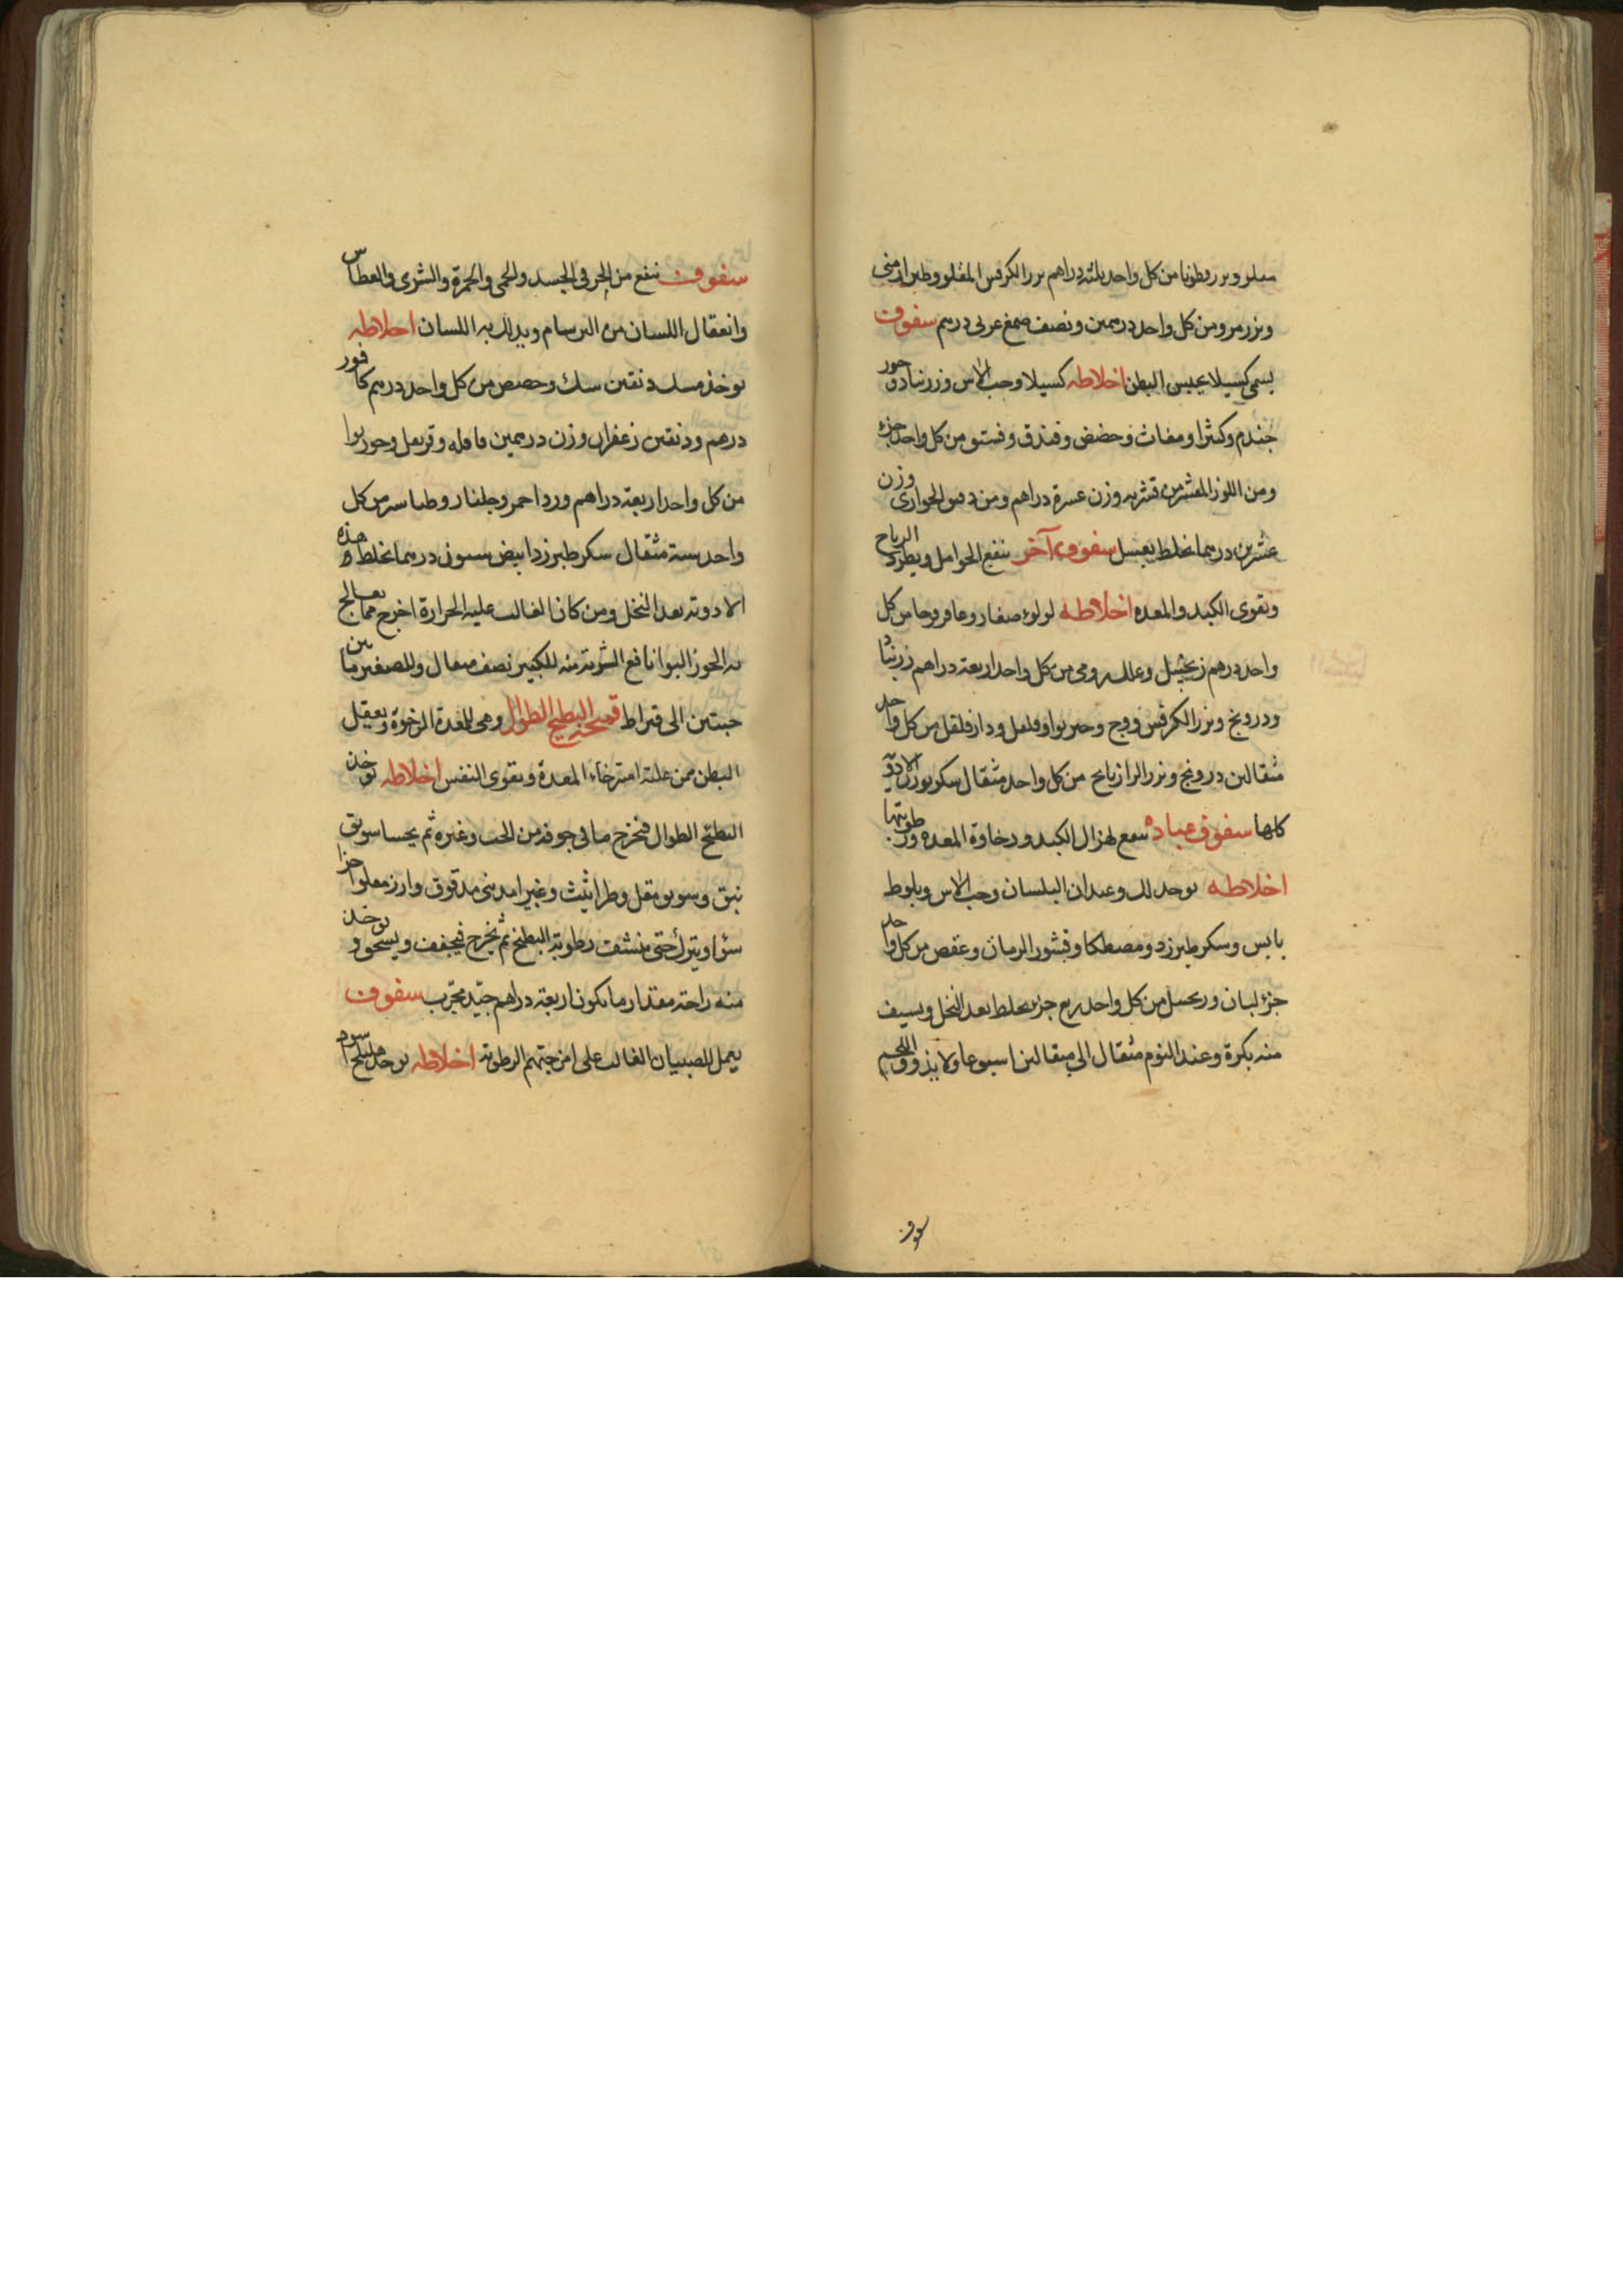 مغلو وبزر قطونا من كل واحد ثلثه دراهم بزر الكرفس المغلو وطين ارمنى
وبزر مرو من كل واحد درهمين ونصف صمغ عربى درهم سفوف
يسمى كسيلا يحبس البطن اخلاطه كسيلا وحب الاس وزرنباد وجوز
جندم وكثيرا ومغاث وحضض وفندق وفستق من كل واحد جزء
ومن اللوز المقشر من قشريه وزن عشرة دراهم ومن دقيق الحوارى وزن
عشرين درهما يخلط بعسل سفوف آخر ينفع الحوامل ويطرد الرياح
ويقوى الكبد والمعده اخلاطه لولوء صغار وعاقرقرحا من كل
واحد درهم زنجبيل وعلك رومى من كل واحد اربعة دراهم زرنباد
ودرونج وبزر الكرفس ووج وخير بوا وفلفل ودار فلفل من كل واحد
مثقالين درونج وبزر الرازيانج من كل واحد مثقال سكر بوزن الادوية
كلها سفوف عباده ينفع لهزال الكبد ورخاوة المعده ورطوبتها
اخلاطه يوخذ لك وعيدان البلسان وحب الاس وبلوط
يابس وسكر طبرزد ومصطكا وقشور الرمان وعفص من كل واحد
جزء لبان وزنجبيل من كل واحد ربع جزء يخلط بعد النخل ويسيف
منه بكرة وعند النوم مثقال الى مثقالين اسبوعا ولا يذوق اللحم
سفوف
سفوف ينفع من الحر فى الجسد والحمى والحمرة والشرى والعطاس
وانعقال اللسان من البرسام ويدلك به اللسان اخلاطه
يوخذ مسك دنقين سك وحضض من كل واحد درهم كافور
درهم ودنقين زعفران وزن درهمين قاقله وقرنفل وجوز بوا
من كل واحد اربعة دراهم ورد احمر وجلنار وطباشير من كل
واحد ستة مثقال سكر طبرزد ابيض ستون درهما يخلط هذه
الادوية بعد النخل ومن كان الغالب عليه الحرارة اخرج مما يعالج
به الجوز البوا نافع الشربة منه للكبير نصف مثقال وللصغير ما بين
حبتين الى قيراط قميحة البطيخ الطوال وهى للمعدة الرخوة ويعقل
البطن من علة استرخاء المعدة ويقوى النفس اخلاطه يوخذ
البطيخ الطوال فيخرج ما فى جوفه من الحب وغيره ثم يحشا سويق
نبق وسويق مقل وطراثيث وغبيرا مدنى مدقوق وارز مغلو اجزا
سوا ويترك حتى ينشف رطوبة البطيخ ثم يخرج فيجفف ويسحق ويوخذ
منه راحة مقدار ما يكون اربعة دراهم جيد مجرب سفوف
يعمل للصبيان الغالب على امزجتهم الرطوبة اخلاطه يوخذ هليلج اسود